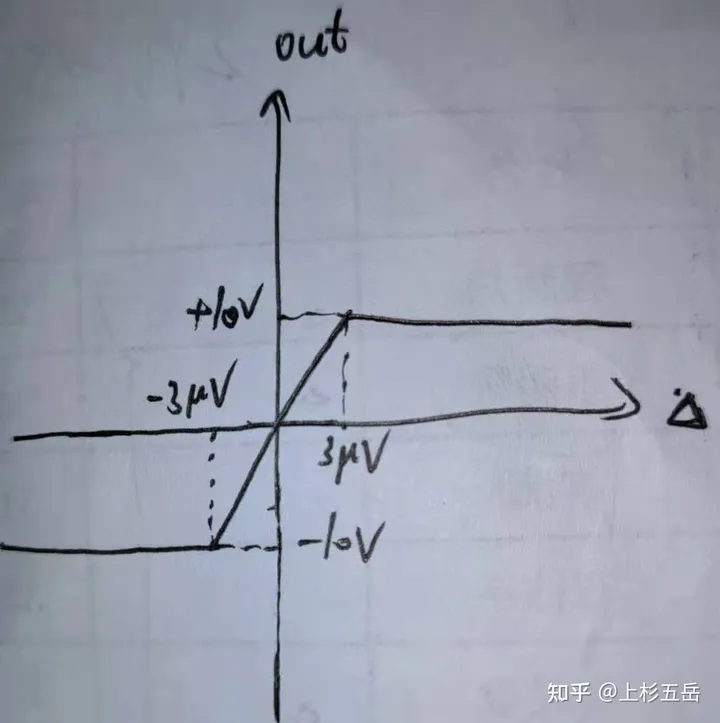 out
+10V
-3μV
Δ
3μV
-10V
知乎 @上杉五岳